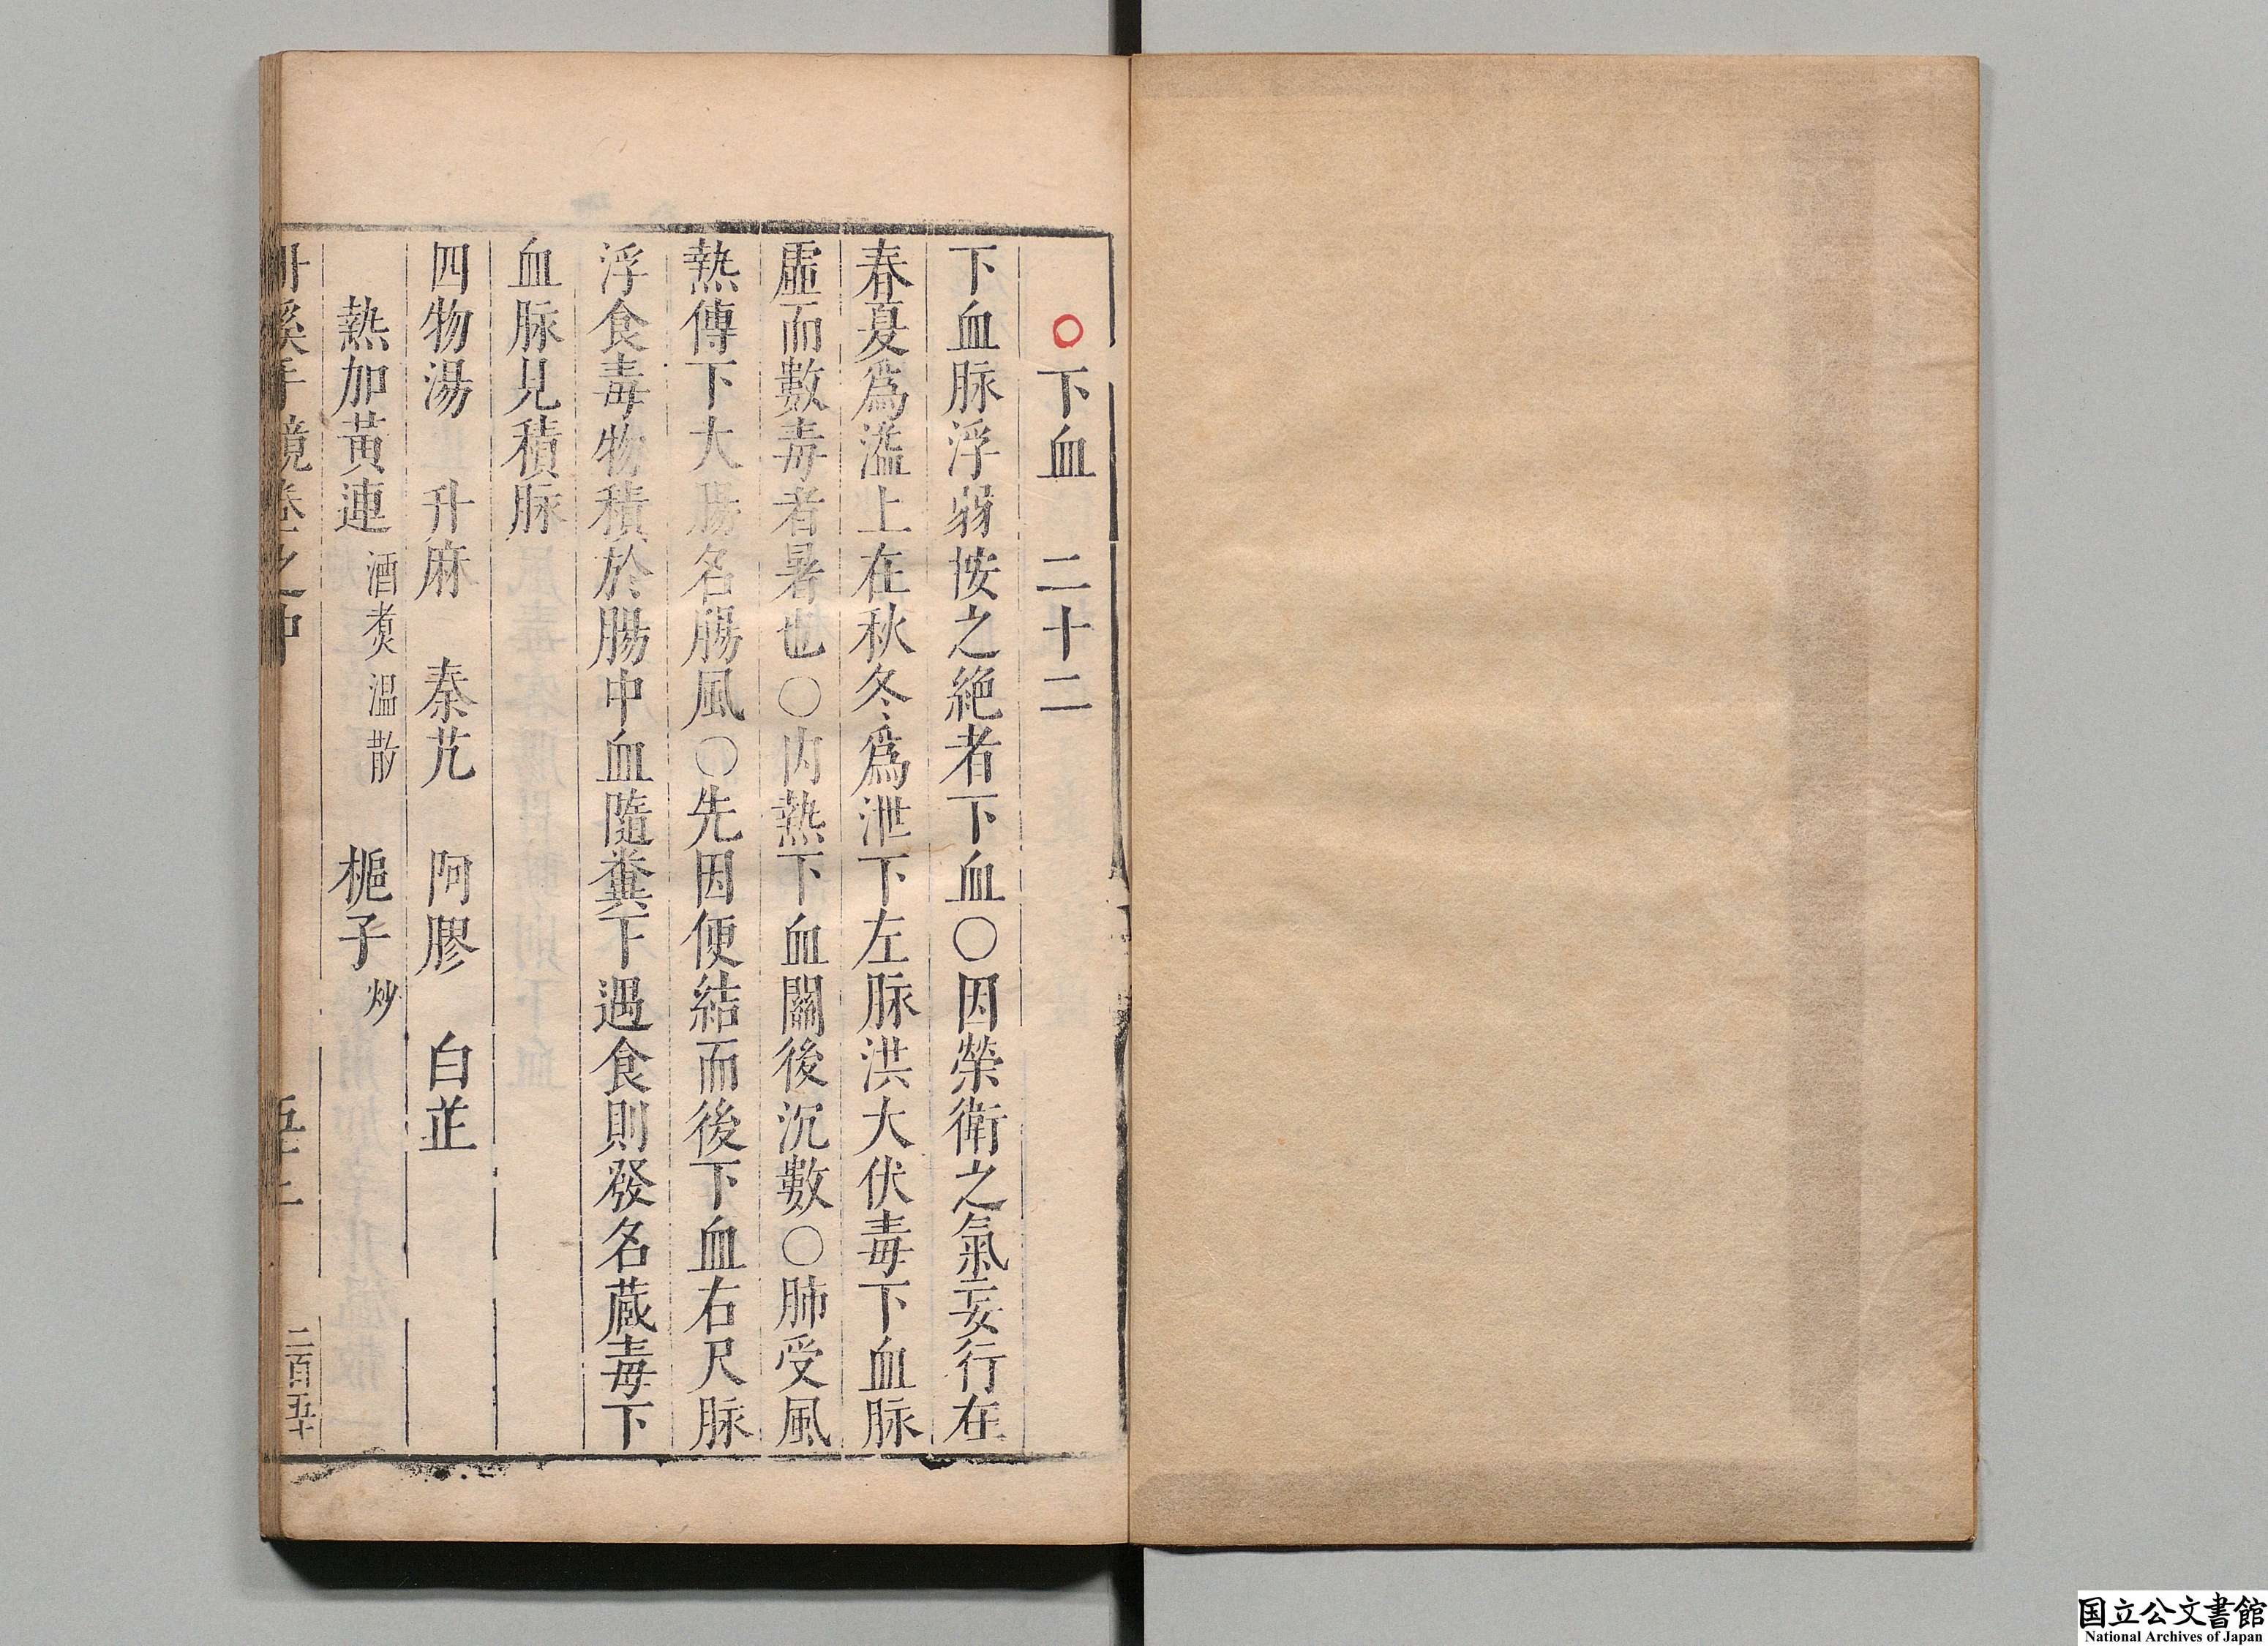 ○下血　二十二
下血脉浮弱按之絶者下血○因榮衛之氣妄行在
春夏爲溢上在秋冬爲泄下左脉洪大伏毒下血脉
虛而數毒者暑也○内熱下血關後沉數○肺受風
熱傳下大腸名腸風○先因便結而後下血右尺脉
浮食毒物積於腸中血隨糞下遇食則發名蔵毒下
血脉見積脉
四物湯　升麻　秦艽　阿膠　白芷
熱加黃連酒煑温散　梔子炒
丹溪手鏡卷之中
二百五十
国立公文書館
National Archives of Japan